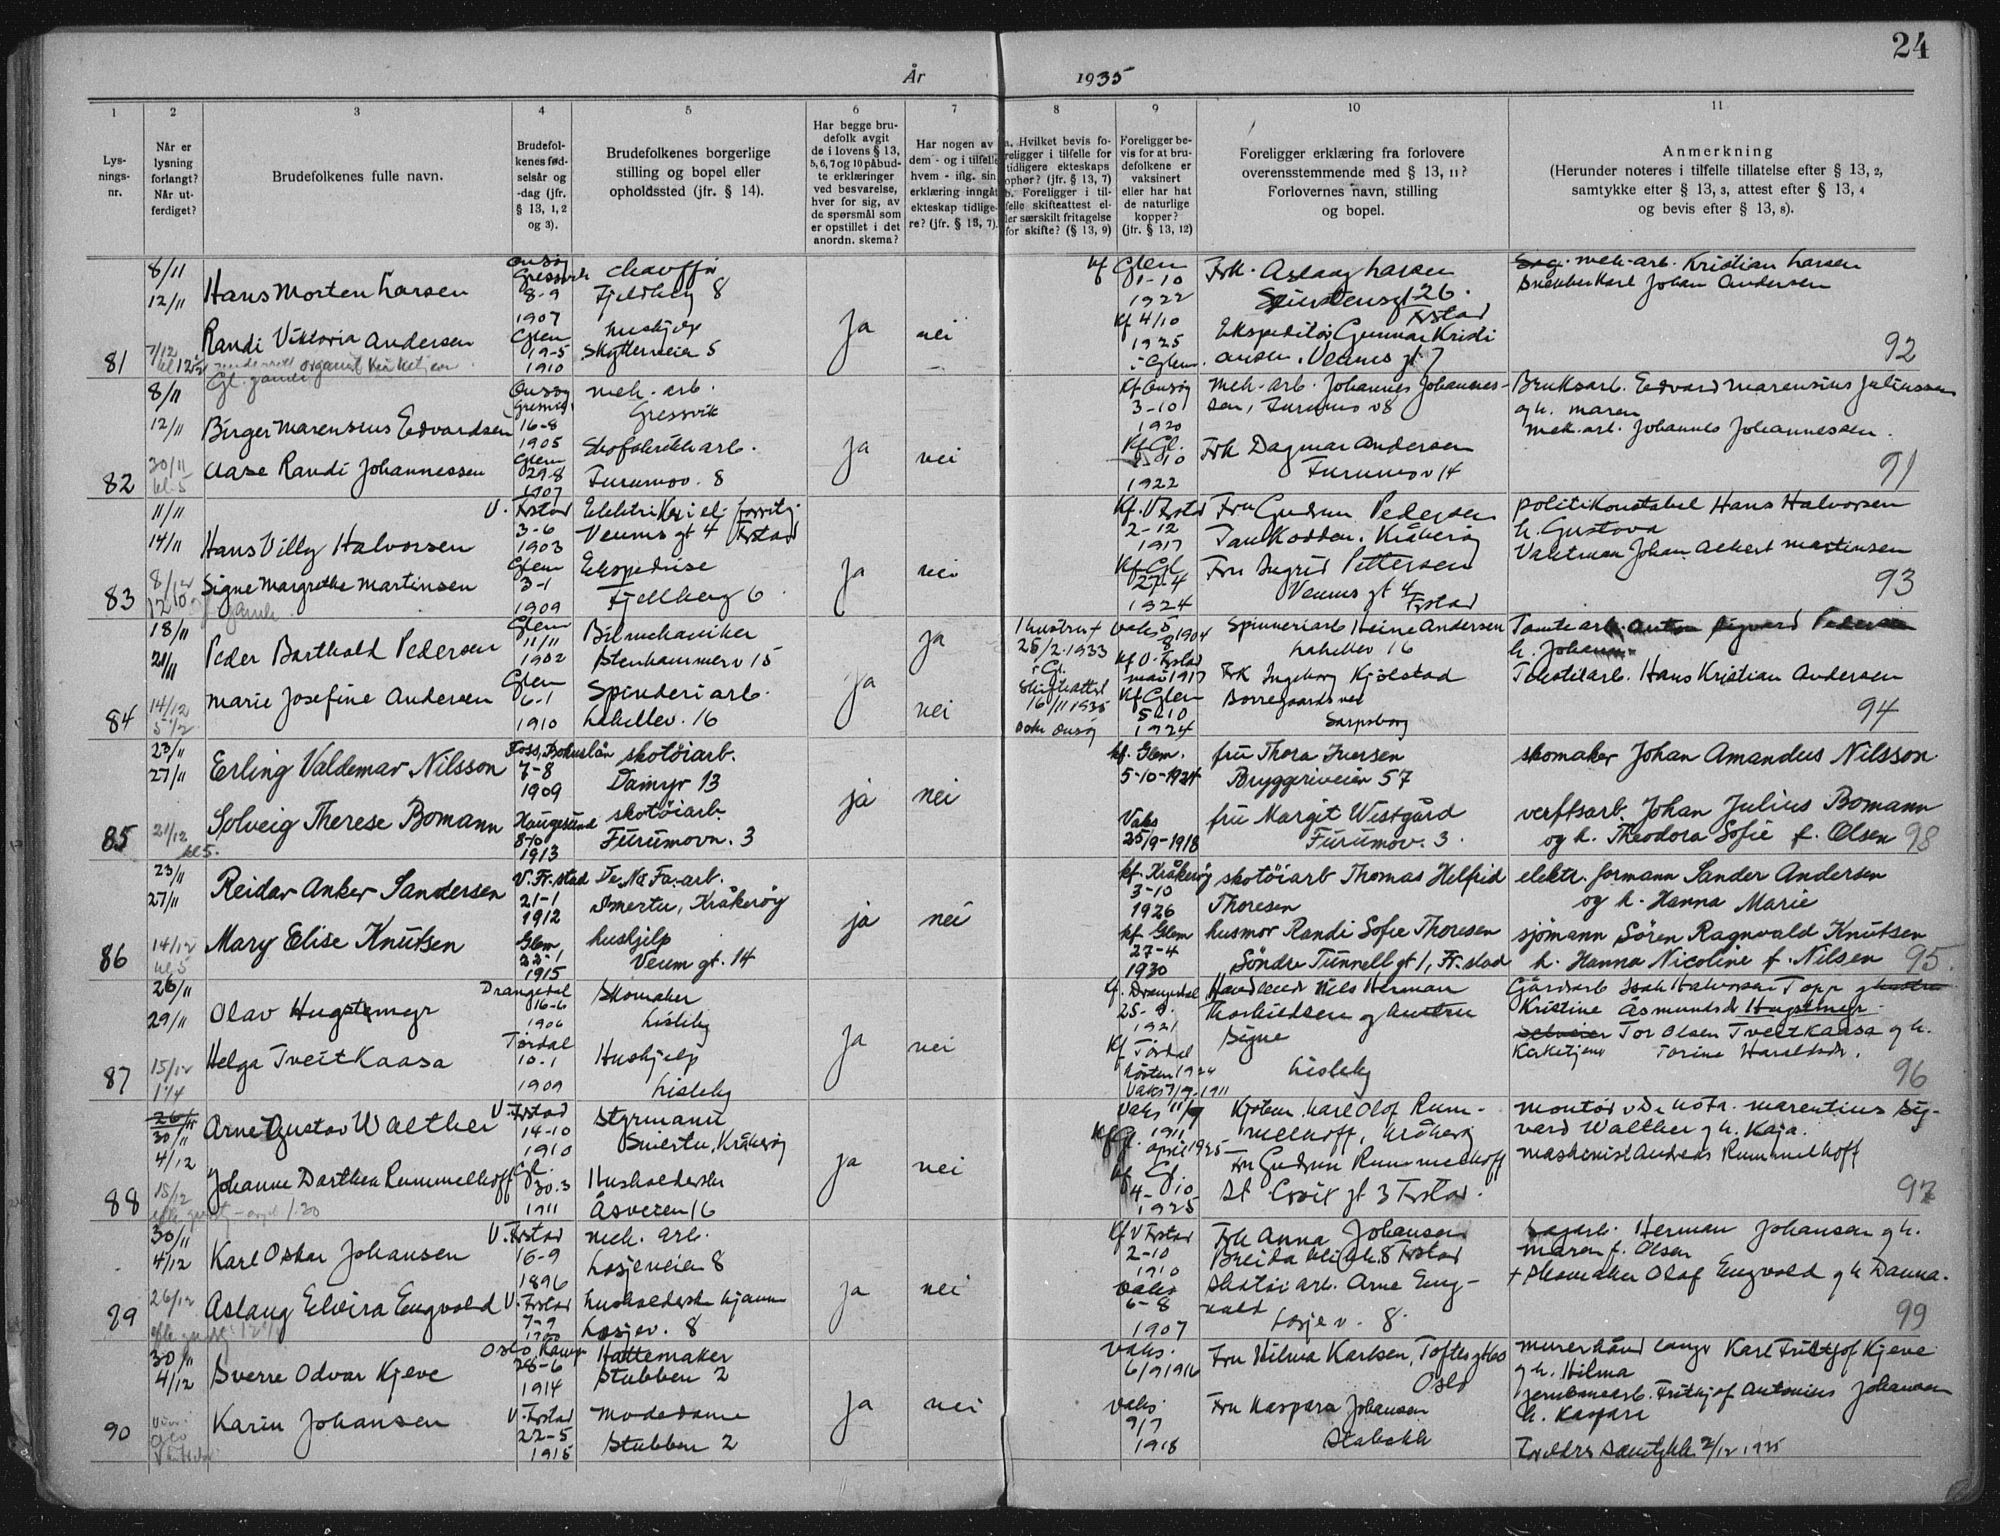 24
År 1935
1 2 3 4 5 6 7 8 9 10 11
Lys-
nings-
nr.
Når er
lysning
forlangt?
Når ut-
ferdiget?
Brudefolkenes fulle navn.
Brudefol-
kenes fød-
selsår og
-dag (jfr.
§ 13, 1, 2
og 3).
Brudefolkenes borgerlige
stilling og bopel eller
opholdssted (jfr. § 14).
Har begge bru-
defolk avgit
de i lovens § 13,
5, 6, 7 og 10 påbud-
te erklæringer
ved besvarelse,
hver for sig, av
de spørsmål som
er opstillet i det
anordn. skema?
Har nogen av
dem - og i tilfelle
hvem - iflg. sin
erklæring inngått
ekteskap tidlige-
re? (jfr. § 13, 7).
a. Hvilket bevis fo-
religger i tilfelle for
tidligere ekteskaps
ophør? (jfr. § 13, 7)
b. Foreligger i til-
felle skifteattest el-
ler særskilt fritagelse
for skifte? (§ 13, 9)
Foreligger be-
vis for at bru-
defolkene er
vaksinert
eller har hat
de naturlige
kopper?
(jfr. § 13, 12)
Foreligger erklæring fra forlovere
overensstemmende med § 13, 11?
Forlovernes navn, stilling
og bopel.
Anmerkning
(Herunder noteres i tilfelle tillatelse efter § 13, 2,
samtykke efter § 13, 3, attest efter § 13, 4
og bevis efter § 13, 8).
81
8/11
12/11
Hans Morten Larsen
Onsøy
Gressvik
8-9
1907
chauffør
Fjeldberg 8
Randi Viktoria Andersen
Glem
19-5
1910
hushjelp
Skytterveien 5
Ja
nei
kf Glem
1-10
1922
Frk. Aslaug Larsen
26.
Frstad
kf 4/10
1925
i Glem
Ekspeditør Gunnar Kristi
ansen, Veums gt. 7
mek-arb. Kristian Larsen
Snekker Karl Johan Andersen
92
82
8/11
12/11
30/11
kl. 5
Birger Marensius Edvardsen
Onsøy
Gressvik
16-8
1905
mek-arb.
Gressvik
Aase Randi Johannessen
Glem
29-8
1907
Skofabrikkarb.
Furumov. 8
Ja
nei
Kf Onsøy
3-10
1920
mek-arb. Johannes Johannes-
sen, Furumov 8
Kf Gl.
10
1922
Frk Dagmar Andersen
Furumov 14
Bruksarb. Edvard Marensius Juliussen
og h. Maren
mek.arb. Johannes Johannessen.
91
83
11/11
14/11
8/12
Hans Villy Halvorsen
V. Frstad
3-6
1903
Veums gt 4 Frstad
Signe Margrethe Martinsen
Glem
3-1
1909
Ekspedrise
Fjellberg 6
Ja
nei
Kf. V Frstad
2-12
1917
Fru Gudrun Pedersen
Tankodden. Kråkerøy
Kf Gl
27-4
1924
Fru Ingrid Pettersen
Veums gt 4
Frstad
politikonstabel Hans Halvorsen
h. Gustava
Vaktman Johan Albert Martinsen
93
84
18/11
21/11
14/12
5 1/2
Peder Barthold Pedersen
Glem
11/11
1902
Bilmekaniker
Stenhammerv 15
Marie Josefine Andersen
Glem
6-1
1910
Spinderiarb.
Lahellev. 16
Ja
ja
nei
1 hustru +
25/2 1933
i Gl.
Skifteattest
16/11 1935
Onsøy
vaks 5/8 1904
Kf V. Frstad
mai 1917
Kf Glem
5-10
1924
Spinneriarb Heine Andersen
Lahellev 16
Frk Ingeborg Kjölstad
Borregaardsvei
Sarpsborg
Tomtearb. Anton Sigvard Pedersen
h. Johanne
Tekstilarb. Hans Kristian Andersen
94
85
23/11
27/11
21/12
kl 5.
Erling Valdemar Nilsson
Foss, Bohuslän
7-8
1909
skotöiarb.
Damyr 13
Solveig Therese Bomann
Haugesund
8/10
1913
skotöiarb.
Furumovn. 3
ja
nei
kf. Glem.
5-10-1924
fru Thora Iversen
Bryggeriveien 57
Vaks
25/9-1918
fru Margit Westgård
Furumov. 3.
skomaker Johan Amandus Nilsson
verftsarb. Johan Julius Bomann
og h. Theodora Sofie f. Olsen 98
86
23/11
27/11
14/12
kl 5
Reidar Anker Sandersen
V. Fr.stad
21-1
1912
De Na Fa. arb.
Smertu, Kråkeröy
Mary Elise Knutsen
Glem
22-1
1915
hushjelp
Veum gt. 14
ja
nei
kf. Kråkeröy
3-10
1926
skotöiarb Thomas Helfrid
Thoresen
kf. Glem
27-4
1930
husmor Randi Sofie Thoresen
Söndre Tunnell gt 1, Fr.stad
elektr. formann Sander Andersen
og h. Hanna Marie
sjömann Sören Ragnvald Knutsen
h. Hanna Nicoline f. Nilsen 95.
87
26/11
29/11
15/12
Olav Hugstmyr
Drangedal
16-6
1906
Skomaker
Lisleby
Helga Tveitkaasa
Tørdal
10-1
1909
Hushjelp
Lisleby
Ja
nei
kf. Drangedal
1921
Nils Herman
Thorkildsen og hustru
Signe
Kf Tørdal
høsten 1924
Vaks 7/9-1911
Lisleby
Gårdarb Isak Halvorsen Topp og hustru
Kristine Åsmundsd Hugstmyr
selveier Tor Olsen Tveitkaasa og h.
Kirketjener Torine Haraldsdr.
96
88
26/11
30/11
4/12
15/12
Arne Gustav Walther
V. Frstad
14-10
1910
Styrmann
Smertu, Kråkerøy
Johanne Dorthea Rummelhoff
Gl.
30.3
1911
Husholderske
Åsveien 16
Ja
nei
Vaks 11/9
1911
Kf Gl. april 1925
Karl Olof Rum-
melhoff, Kråkerøy
kf Gl
4-10
1925
Fru Gudrun Rummelhoff
St. Croix gt 3 Frstad.
montør v De Nofa. Marentius Sig-
vard Walther og h. Kaja.
maskinist Andreas Rummelhoff
97
89
30/11
4/12
26/12
Karl Oskar Johansen
V. Frstad
16-9
1896
mek. arb.
Losjeveien 8
Aslaug Elvira Engvold
V. Frstad
7-9
1900
husholderske hjemme
Losjev. 8
Ja
nei
Kf V Frstad
2-10
1910
Frk Anna Johansen
Frstad
Vaks
6-8
1907
Skotøiarb. Arne Eng-
vald
Losjev. 8.
Sagarb. Herman Johansen og h.
Maren f. Olsen
+ Skomaker Olaf Engvold og h Danna.
99
90
30/11
4/12
Sverre Odvar Kjeve
Oslo, Kampen
28-6
1914
Hattemaker
Stubben 2
Karin Johansen
V. Frstad
22-5
1915
Modedame
Stubben 2
Ja
nei
Vaks.
6/9 1916
Fru Hilma Karlsen, Toftesgt
Oslo
Vaks.
9/7
1918
Fru Kaspara Johansen
Stabekk
murerhåndlanger Karl Fritjof Kjeve
og h. Hilma
Jernbanearb. Frithjof Antonius Johansen
h. Kaspara
Foreldres samtykke 2/12 1935